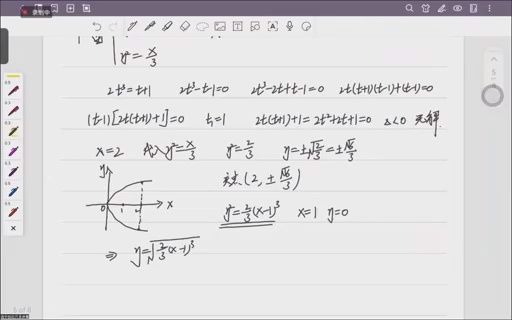 y²=x/3
2t³=t+1 2t³-t-1=0 2t³-2t+t-1=0 2t(t+1)(t-1)+(t-1)=0
(t-1)[2t(t+1)+1]=0 t=1 2t(t+1)+1=2t²+2t+1=0 Δ<0 无解
x=2 代入y²=x/3 y²=2/3 y=±√(2/3)=±√6/3
y 交点(2,±√6/3)
0 1 x y²=2/3(x-1)³ x=1 y=0
⇒ y=√(2/3(x-1)³)
5 of 6